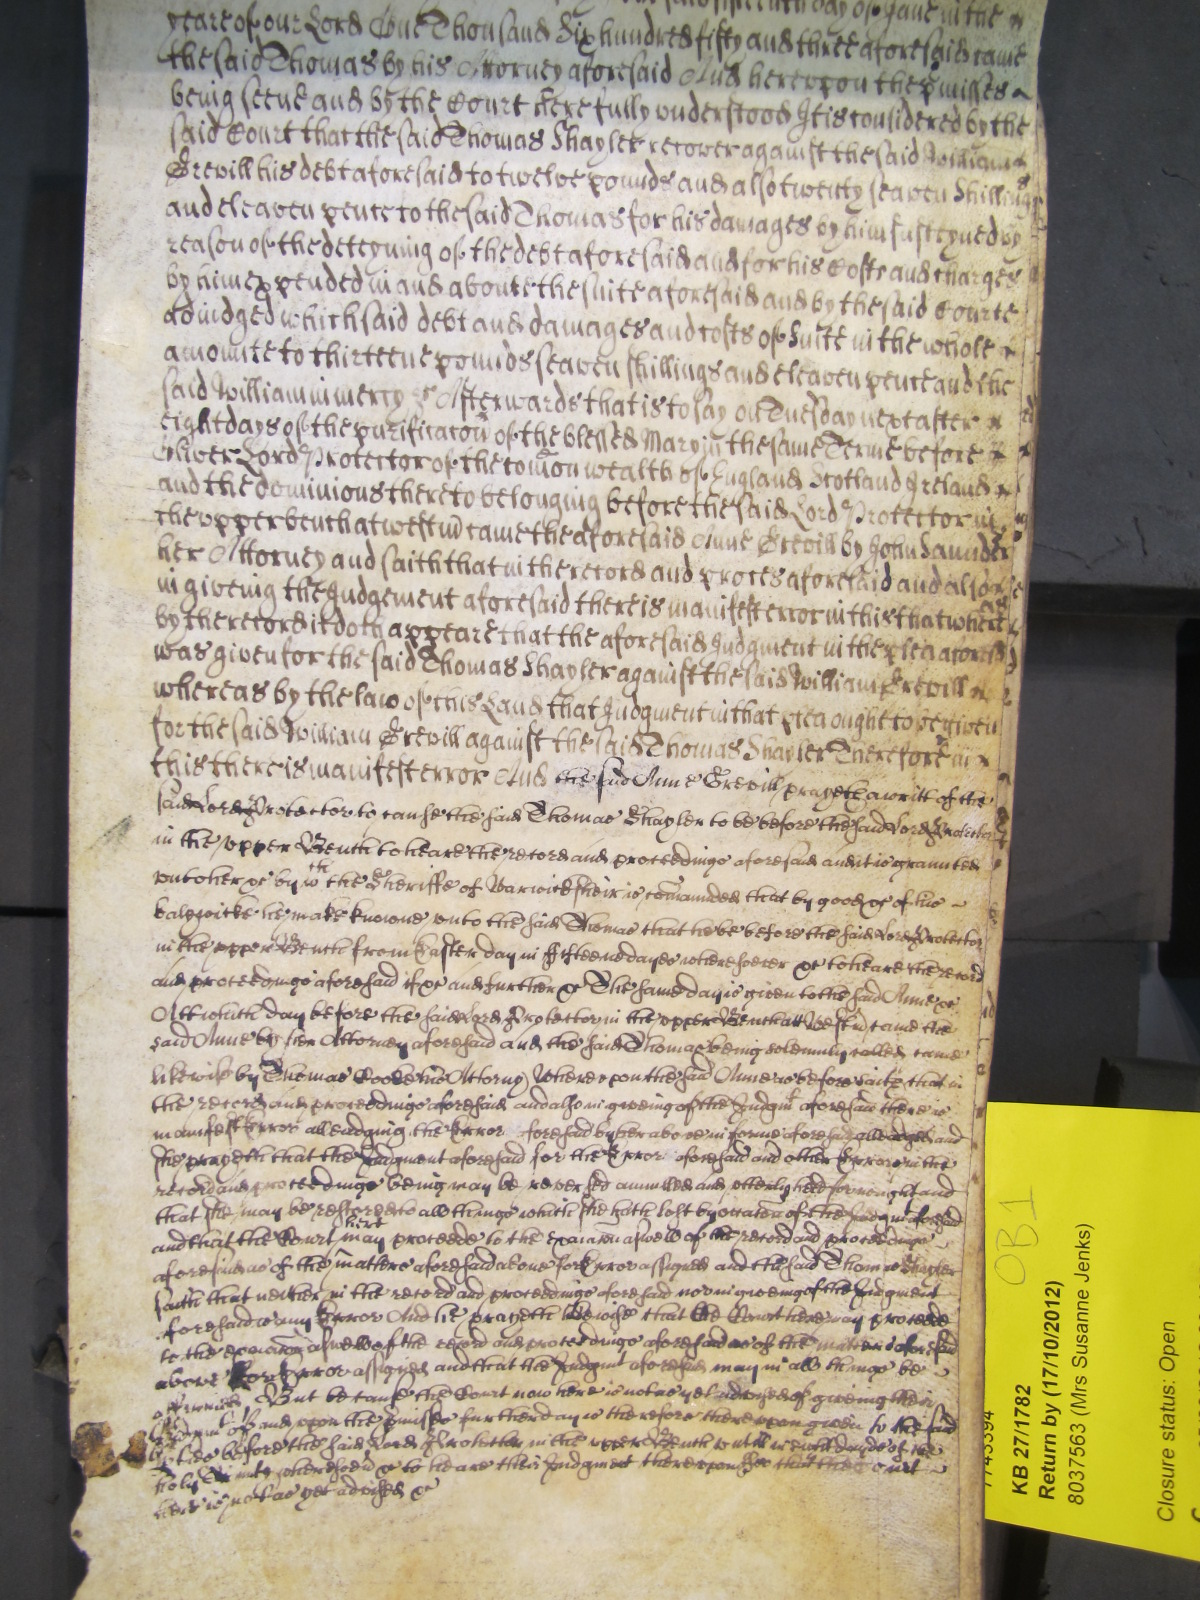 the said fifteenth day of June in the
yeare of our Lord One Thousand Six hundred fifty and three aforesaid came
the said Thomas by his Attorney aforesaid And hereupon the p'misses
being seene and by the Court here fully understood It is considered by the
said Court that the said Thomas Shayler recover against the said William
Grevill his debt aforesaid to twelve pounds and also twenty seaven Shillings
and eleaven pence to the said Thomas for his damages by him susteyned by
reason of the deteyning of the debt aforesaid and for his Costs and charges
by him expended in and aboute the suite aforesaid and by the said Courte
adiudged which said debt and damages and costs of Suite in the whole
amounte to thirteene pounds seaven shillings and eleaven pence and the
said William in mercy &c Afterwards that is to say on Tuesday next after
eight days of the purificacon of the blessed Mary in the same Terme before
Oliver Lord Protector of the comon wealth of England Scotland Ireland
and the dominions thereto belonging before the said Lord Protector in
the upper bench at westm came the aforesaid Anne Grevill by John Saunders
her Attorney and saith that in the record and proces aforesaid and also
in giveing the Judgement aforesaid there is manifest error in this that where as
by the record it doth appeare that the aforesaid Judgment in the plea aforesd
was given for the said Thomas Shayler against the said William Grevill
whereas by the law of this Land that Judgment in that plea ought to be given
for the said William Grevill against the said Thomas Shayler Therefore in
this there is manifest error And the said Anne Grevill prayeth a writt of the
said Lord Protector to cause the said Thomas Shayler to be before the said Lord Protector
in the upper Bench to heare the record and proceedings aforesaid and it is graunted
unto her &c by wch the Sheriffe of Warwicksheir is comanded that by good &c of his
balywicke he make knowne unto the said Thomas that he be before the said Lord Protector
in the upper Bench from Easter day in fifteene dayes wheresoever &c to heare the record
and proceedings aforesaid if &c and further &c The same day is given to the said Anne &c
Att which day before the said Lord Protector in the upper Bench att Westm came the
said Anne by her Attorney aforesaid and the said Thomas being solemnly called came
likewise by Thomas Cooke his Attorny Whereupon the said Anne as before saith that in
the record and proceedings aforesaid and also in giveing of the Judgmt aforesaid there is
manifest Error alleadging the Error aforesaid by her above in forme aforesaid alleadged and
she prayeth that the Judgment aforesaid for the Error aforesaid and other Errors in the
record and proceedings being may be reversed annulled and utterly held for nought and
that she may be restored to all things which she hath lost by occasion of the Judgmt aforesaid
and that the Court here may proceede to the exaiacon aswell of the record and proceedings
aforesaid as of the matters aforesaid above for Error assigned and the said Thomas Shayler
saith that neither in the record and proceedings aforesaid nor in giveing of the Judgment
aforesaid is any Error And he prayeth likewise that the Court here may proceede
to the exaiacon aswell of the record and proceedings aforesaid as of the matters aforesaid
above for Error assigned and that the Judgmt aforesaid may in all things be
affirmed But because the Court now here is not as yet advised of giveing their
Judgmt of and upon the p'misses further day is therefore thereupon given to the said
p'ties before the said Lord Protector in the upper Bench untill in eight dayes of the
holy Trinity wheresoever &c to heare their Judgment thereupon for that the Court
here is not as yet advised &c
7743394
KB 27/1782
Return by (17/10/2012)
8037563 (Mrs Susanne Jenks)
OB1
Closure status: Open